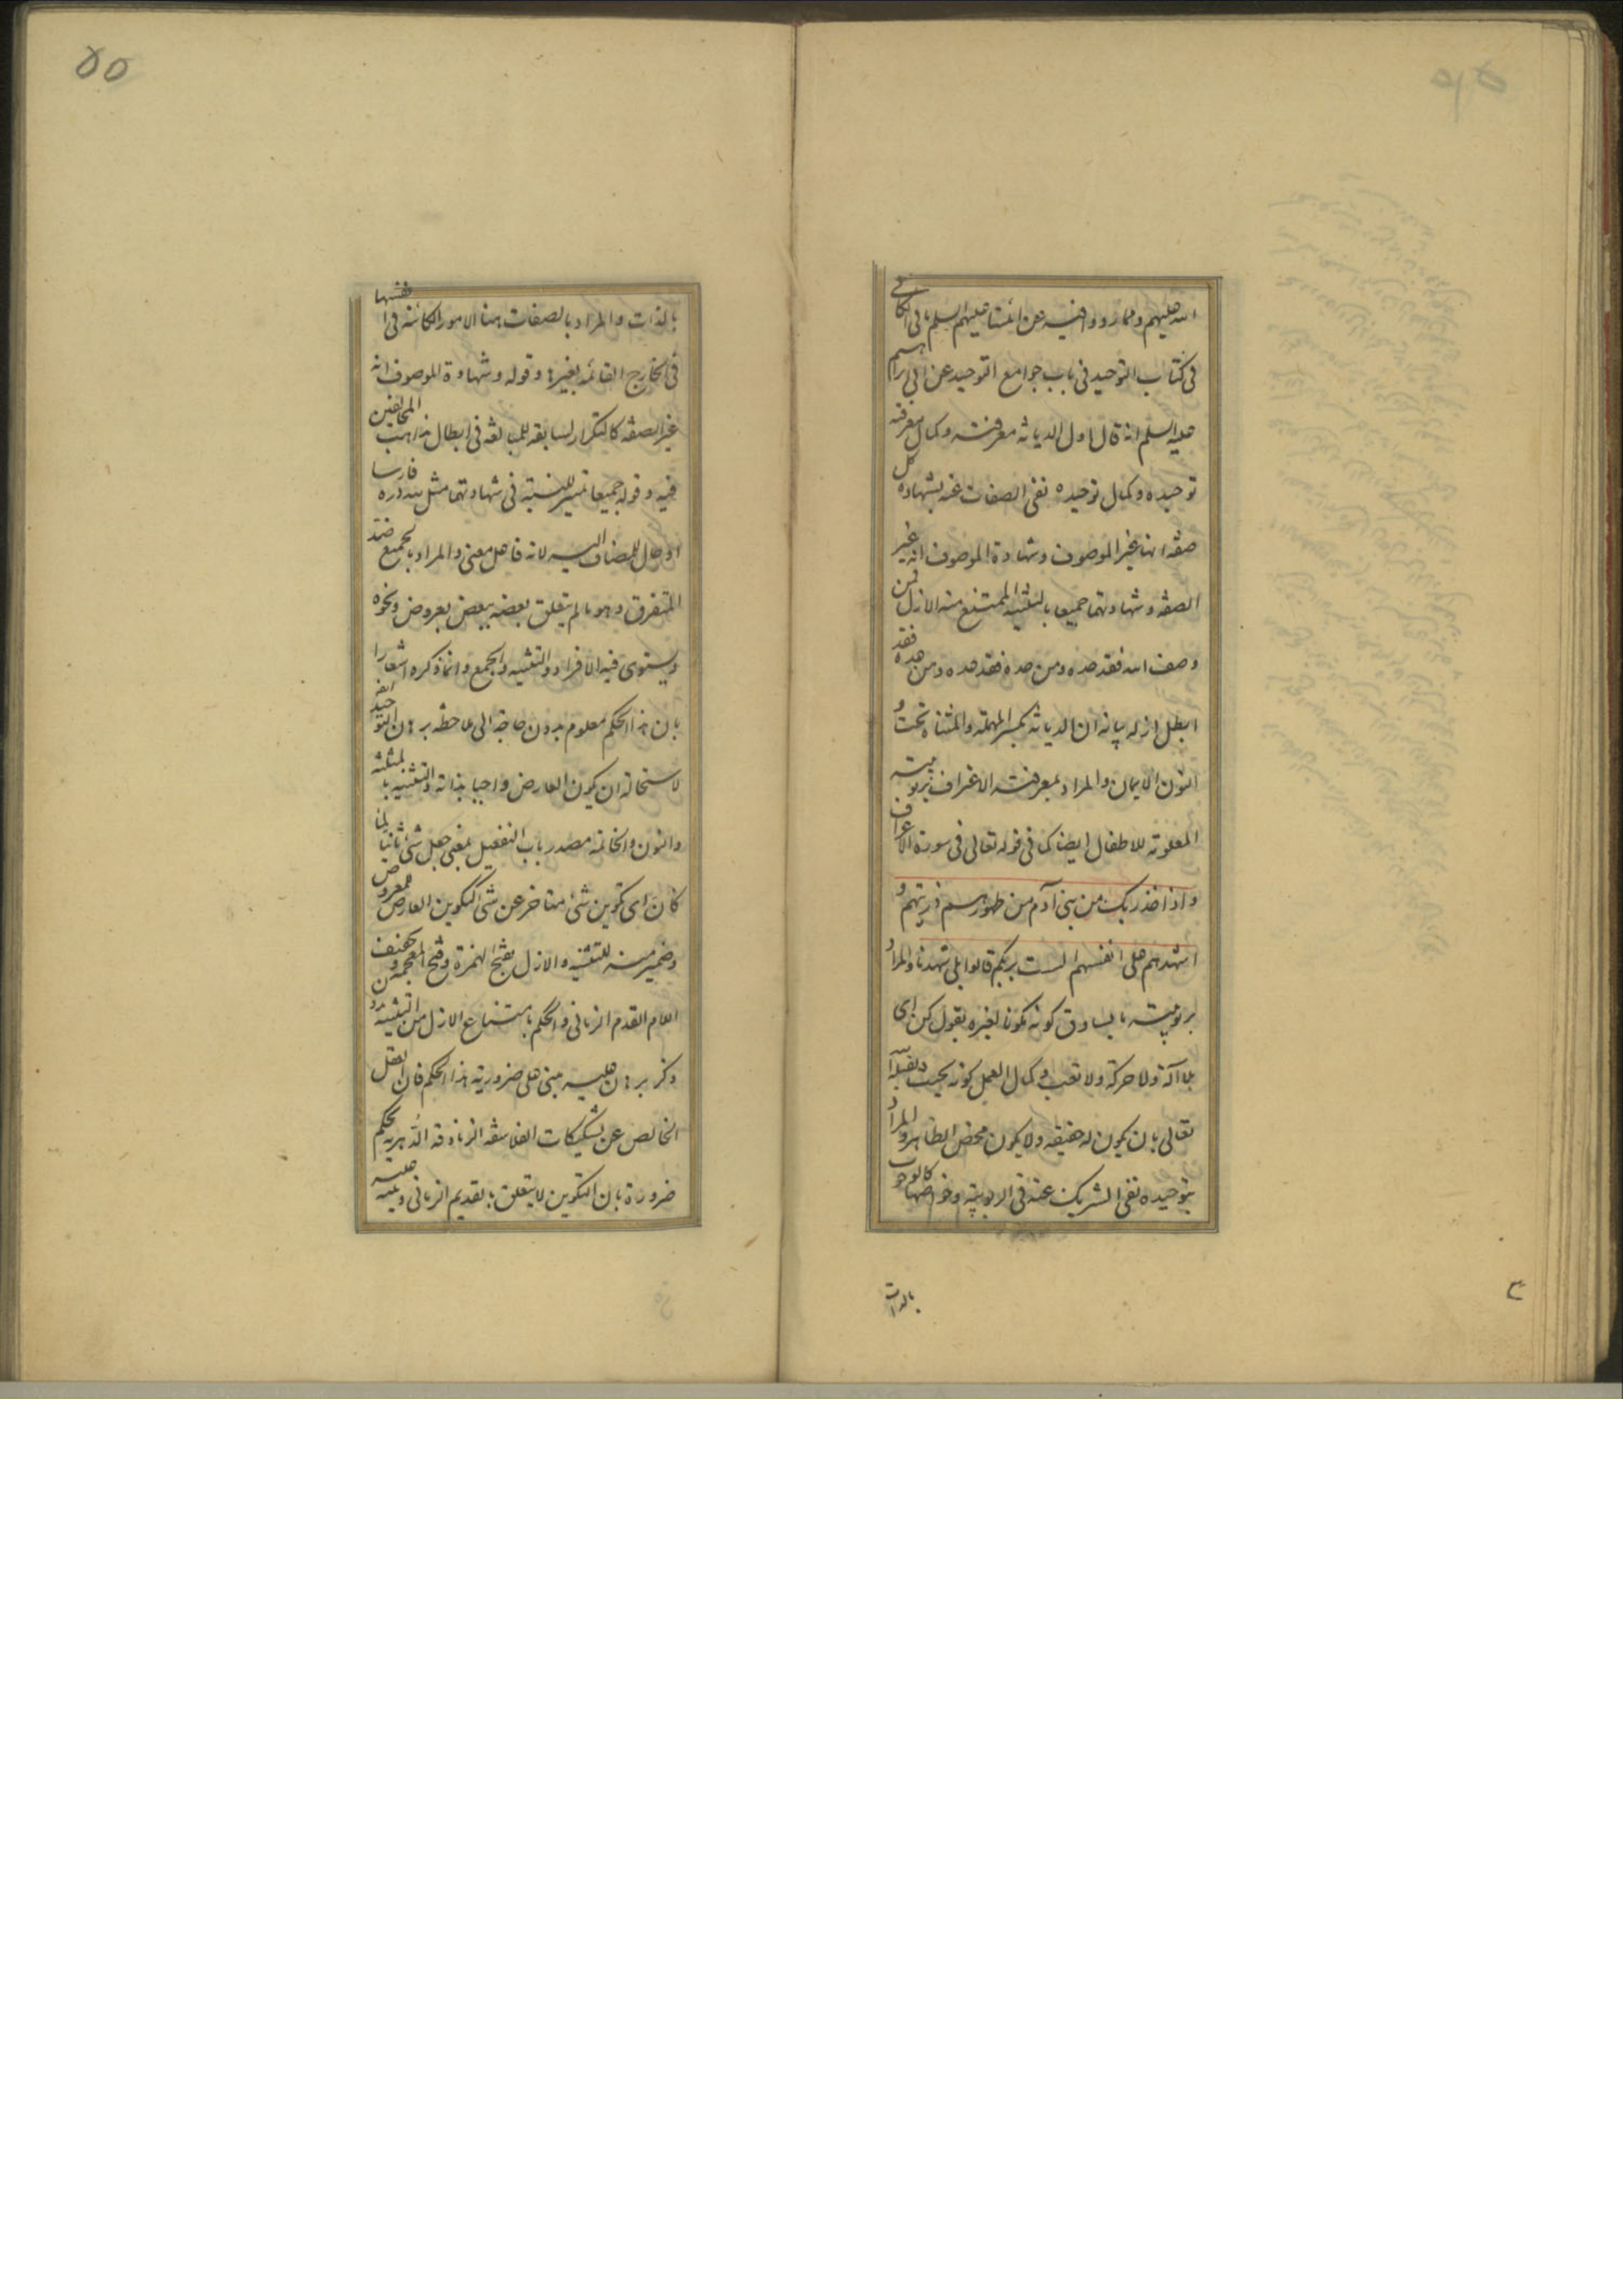 الله عليهم ومما رووا فيه عن ائمتنا عليهم السلم ما فى الكافى
فى كتاب التوحيد فى باب جوامع التوحيد عن ابي ابراهيم
عليه السلم انه قال اول الديانة معرفته وكمال معرفته
توحيده وكمال توحيده نفى الصفات عنه بشهادة كل
صفة انها غير الموصوف وشهادة الموصوف انه غير
الصفة وشهادتهما جميعا بالتثنية الممتنع منه الازل فمن
وصف الله فقد حده ومن حده فقد عده ومن عده فقد
ابطل ازله بيانه ان الديانة بكسر المهملة والمثناة تحت و
النون الايمان والمراد بمعرفته الاعتراف بربوبيته
المعلومة للاطفال ايضا كما فى قوله تعالى فى سورة الاعراف
واذ اخذ ربك من بنى آدم من ظهورهم ذريتهم و
اشهدهم على انفسهم الست بربكم قالوا بلى شهدنا والمراد
بربوبيته ما يساوق كونه مكونا لغيره بقول كن اى
بلا آلة ولا حركة ولا تعب وكمال العمل كونه بحيث يقبله الله
تعالى بان يكون له حقيقة ولا يكون محض الظاهر والمراد
بتوحيده نفى الشريك عنه فى الربوبية وخواصها كالوجوب
بالذات
بالذات والمراد بالصفات هنا الامور الكائنة فى انفسها
فى الخارج القائمة بغيرها وقوله وشهادة الموصوف انه
غير الصفة كالتكرار لسابقه للمبالغة فى ابطال مذاهب المخالفين
فيه وقوله جميعا تمييز للنسبة فى شهادتهما مثل لله دره فارسا
او حال للمضاف اليه لانه فاعل معنى والمراد بالجميع ضد
المتفرق وهو ما لم يتعلق بعضه ببعض بعروض ونحوه
ويستوى فيه الافراد والتثنية والجمع وانما ذكره اشعارا
بان هذا الحكم معلوم بدون حاجة الى ملاحظة برهان التوحيد
لاستحالة ان يكون العارض واجبا بذاته والتثنية بالمثلثة
والنون والخاتمة مصدر باب التفعيل بمعنى جعل شئ ثانيا لما
كان اى تكوين شئ متاخر عن شئ كتكوين العارض للمعروض
وضمير منه للتثنية والازل بفتح الهمزة وفتح المعجمة وتخفيف
اللام القدم الزمانى والحكم بامتناع الازل من التثنية
وذكر برهان عليه مبنى على ضرورية هذا الحكم فان العقل
الخالص عن تشكيكات الفلاسفة الزنادقة الدهرية يحكم
ضرورة بان التكوين لا يتعلق بالقديم الزمانى